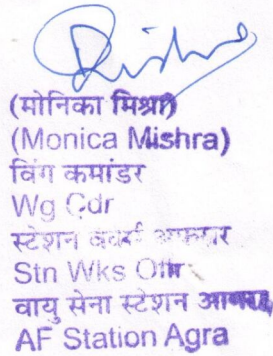 (मोनिका मिश्रा)
(Monica Mishra)
विंग कमांडर
Wg Cdr
स्टेशन
Stn Wks Offr
वायु सेना स्टेशन आगरा
AF Station Agra